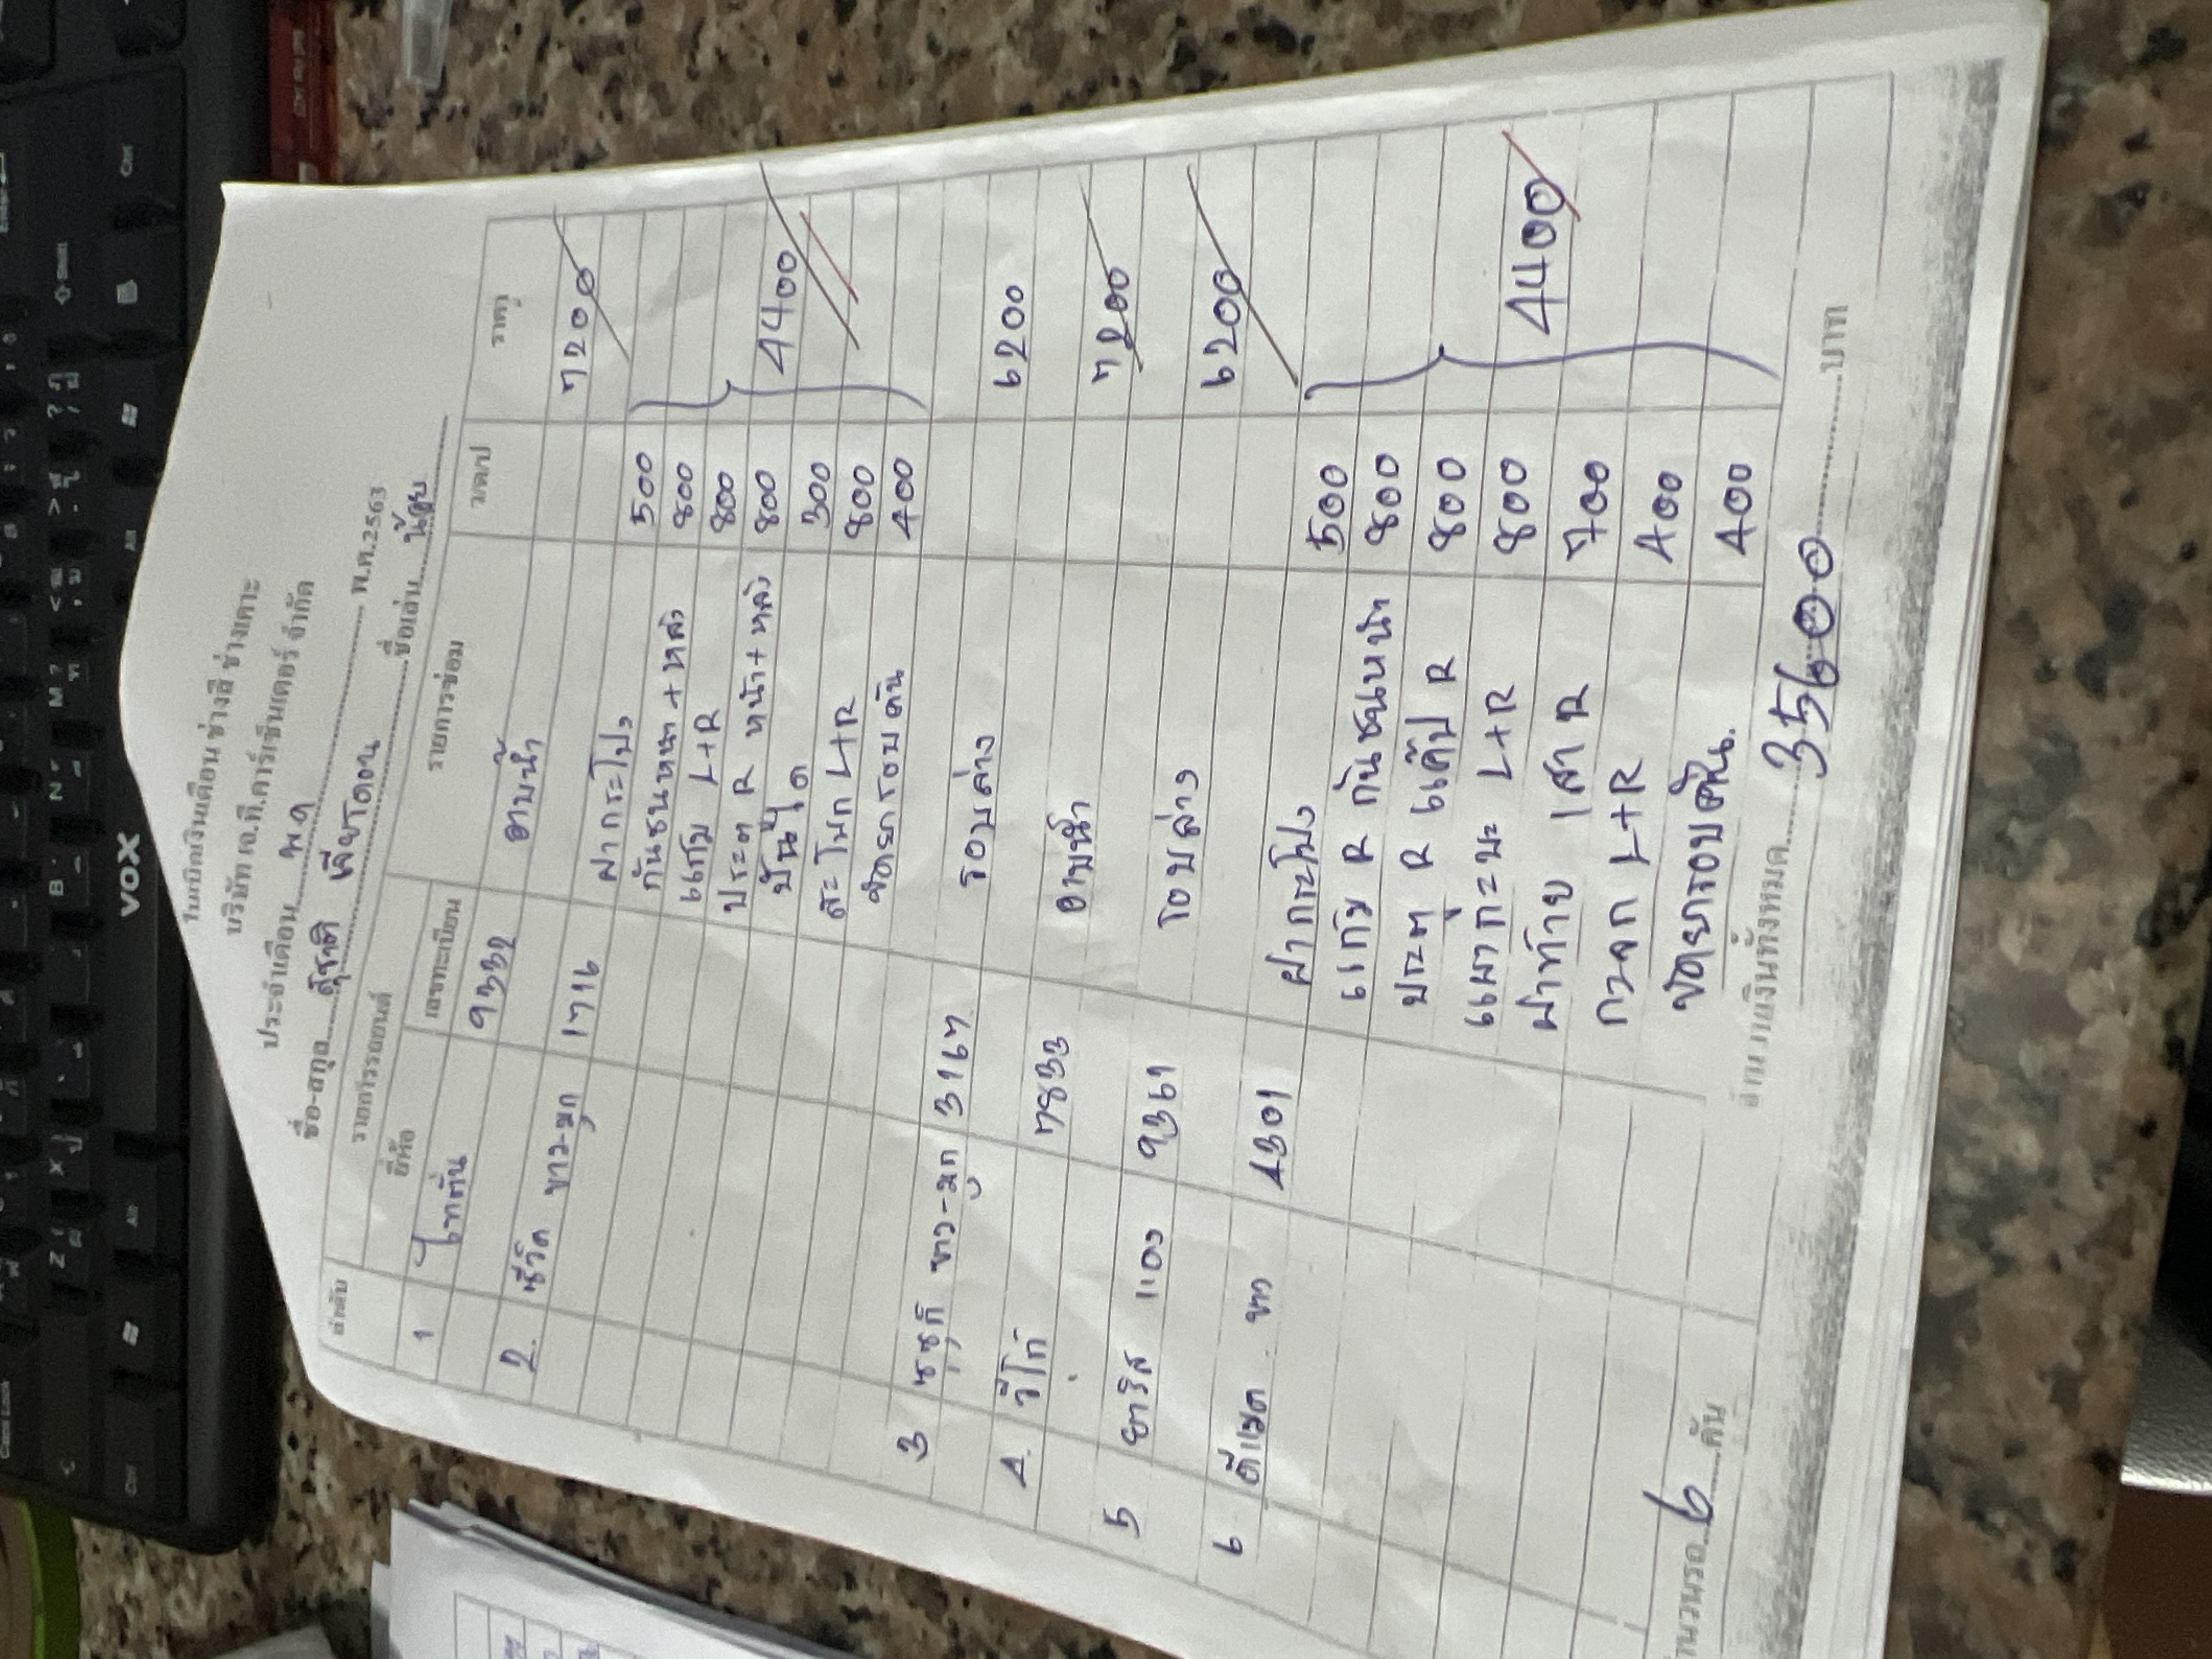 ใบเบิกเงินเดือน ช่างสี ช่างเคาะ
บริษัท เอ.ที.คาร์เซ็นเตอร์ จำกัด
ประจำเดือน พ.ค พ.ศ.2563
ชื่อ-สกุล สุชาติ เคียรโดอน ชื่อเล่น น้อย
ลำดับ รายการรถยนต์ รายการซ่อม ว/ด/ป ราคา
ยี่ห้อ เลขทะเบียน
1 ไททั่น 9332 อาบน้ำ 7200
2. ซีวิค ขาว-มุก 1716 ฝากระโปง 500
กันชนหน้า+หลัง 800
แก้ม L+R 800
ประตู R หน้า+หลัง 800
บันได 300
สะโพก L+R 800
ขัดยารอบคัน 400
4400
3 ซูซูกิ ขาว-มุก 3167 รอบล่าง 6200
4. วีโก้ 7833 อาบน้ำ 7200
5 ยาริส แดง 9361 รอบล่าง 6200
6 ดีแมค ขาว 4301 ฝากระโปง 500
แก้ม R กันชนหน้า 800
ประตู R แค๊ป R 800
แผงกะบะ L+R 800
ฝาท้าย เสา R 700
กระจก L+R 400
ขัดยารอบคัน. 400
4400
จำนวนรถ 6 คัน จำนวนเงินทั้งหมด 35600 บาท
VOX